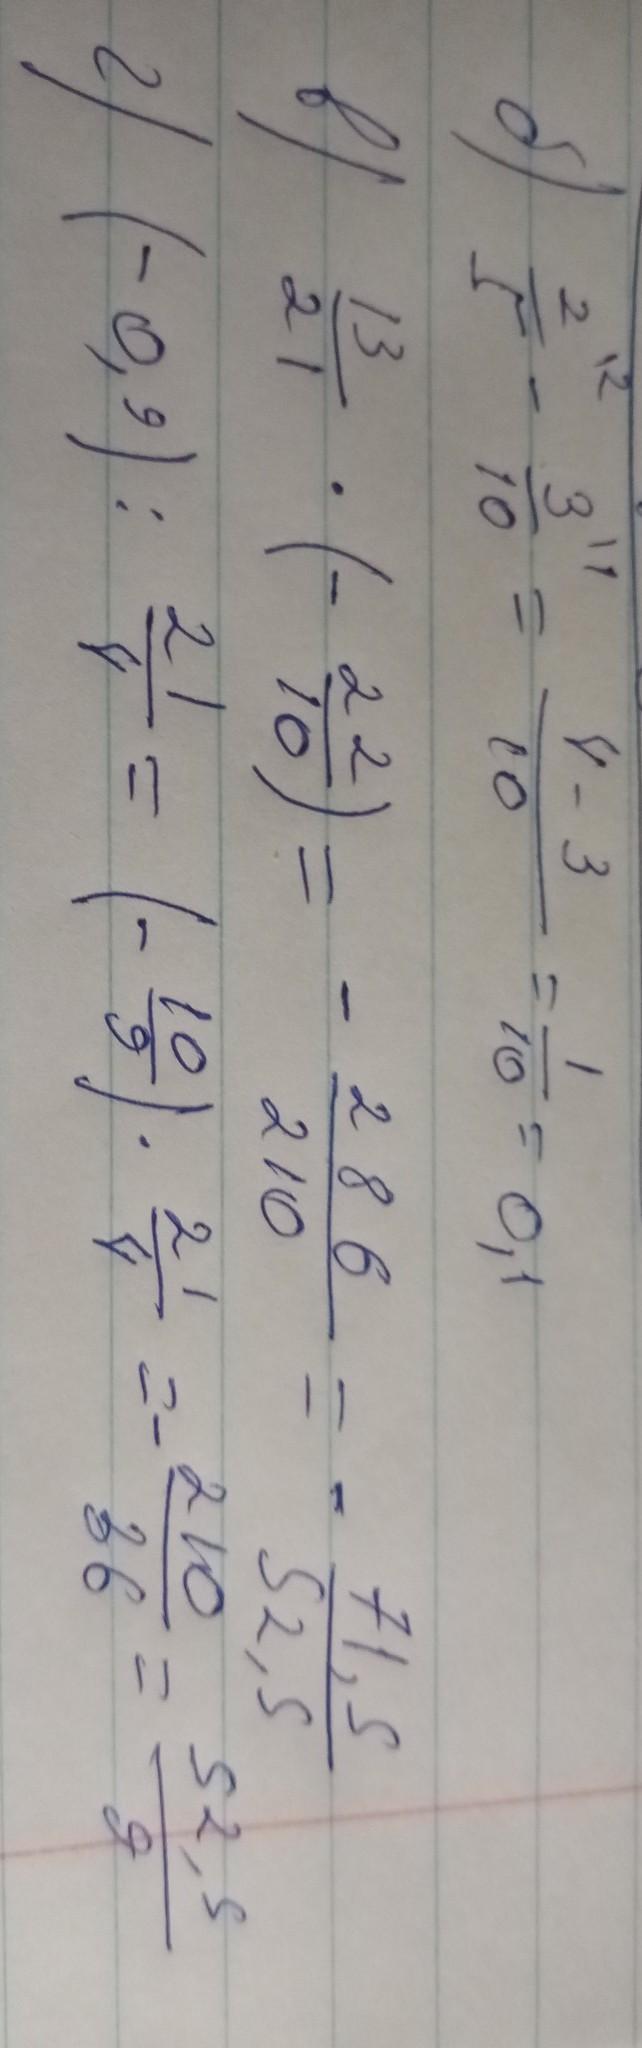 б) 2/5 ^(\2) - 3/10 ^(\1) = (4-3)/10 = 1/10 = 0,1
в) 13/21 · (- 22/10) = - 286/210 = - 71,5/52,5
г) (-0,9) : 21/4 = (- 10/9) · 21/4 = - 210/36 = 52,5/9